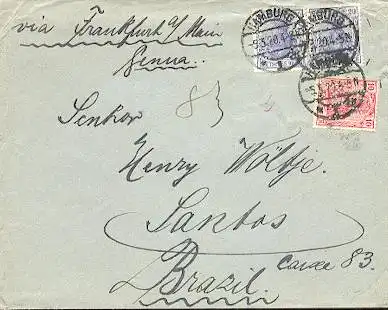 via Frankfurt a/ Main
Genua.
HAMBURG
83
Senhor
Henry Wöltje.
Santos
Brazil.
Caixa 83.